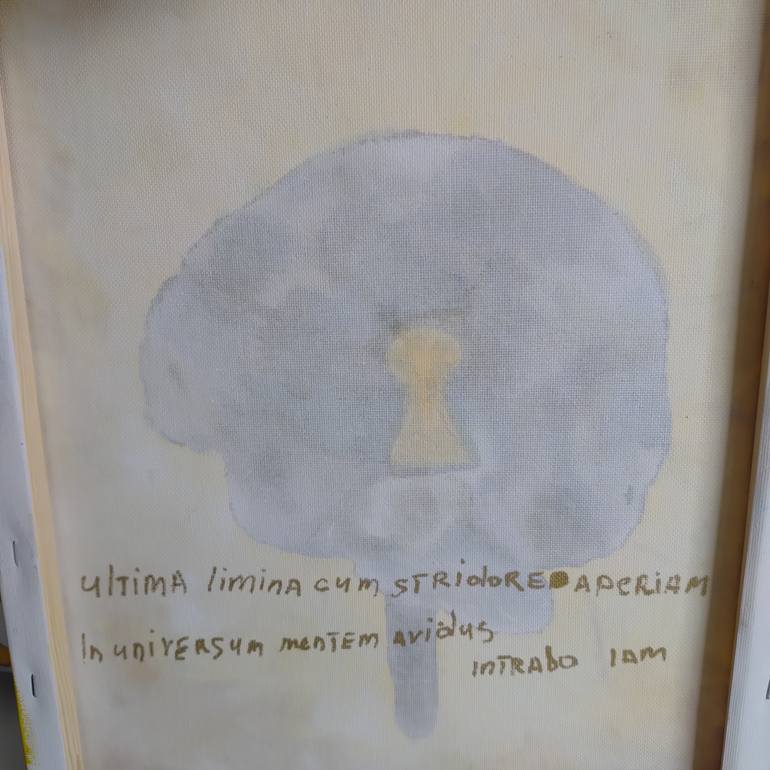 ulTiMA liminA cum STRidoRE APERiAM
In uniVERSum menTEM aviduS
inTRAbo IAM